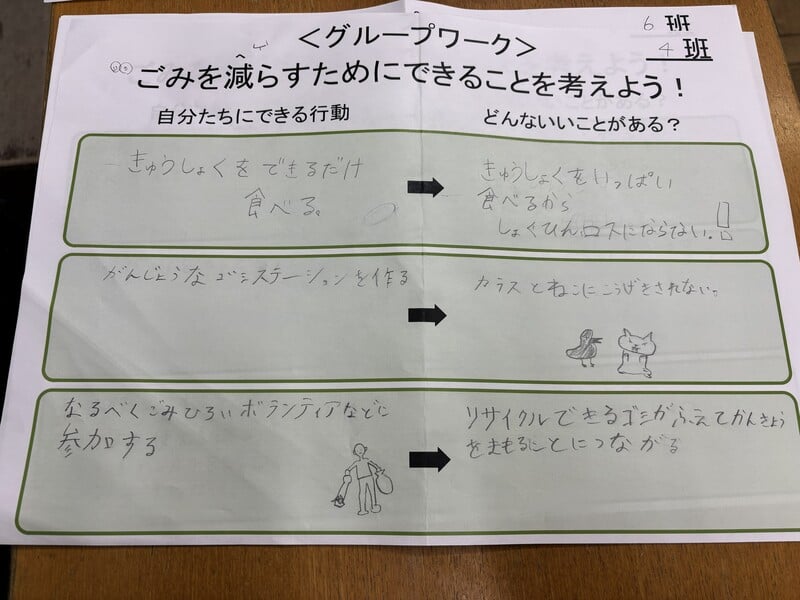 6 班
4 班
<グループワーク>
へ
ごみを減らすためにできることを考えよう!
自分たちにできる行動
どんないいことがある?
きゅうしょくをできるだけ
食べる。
きゅうしょくをいっぱい
食べるから
しょくひんロスにならない。!
がんじょうなゴミステーションを作る
カラスとねこにこうげきされない。
なるべくごみひろいボランティアなどに
参加する
リサイクルできるゴミがふえてかんきょう
をまもることにつながる